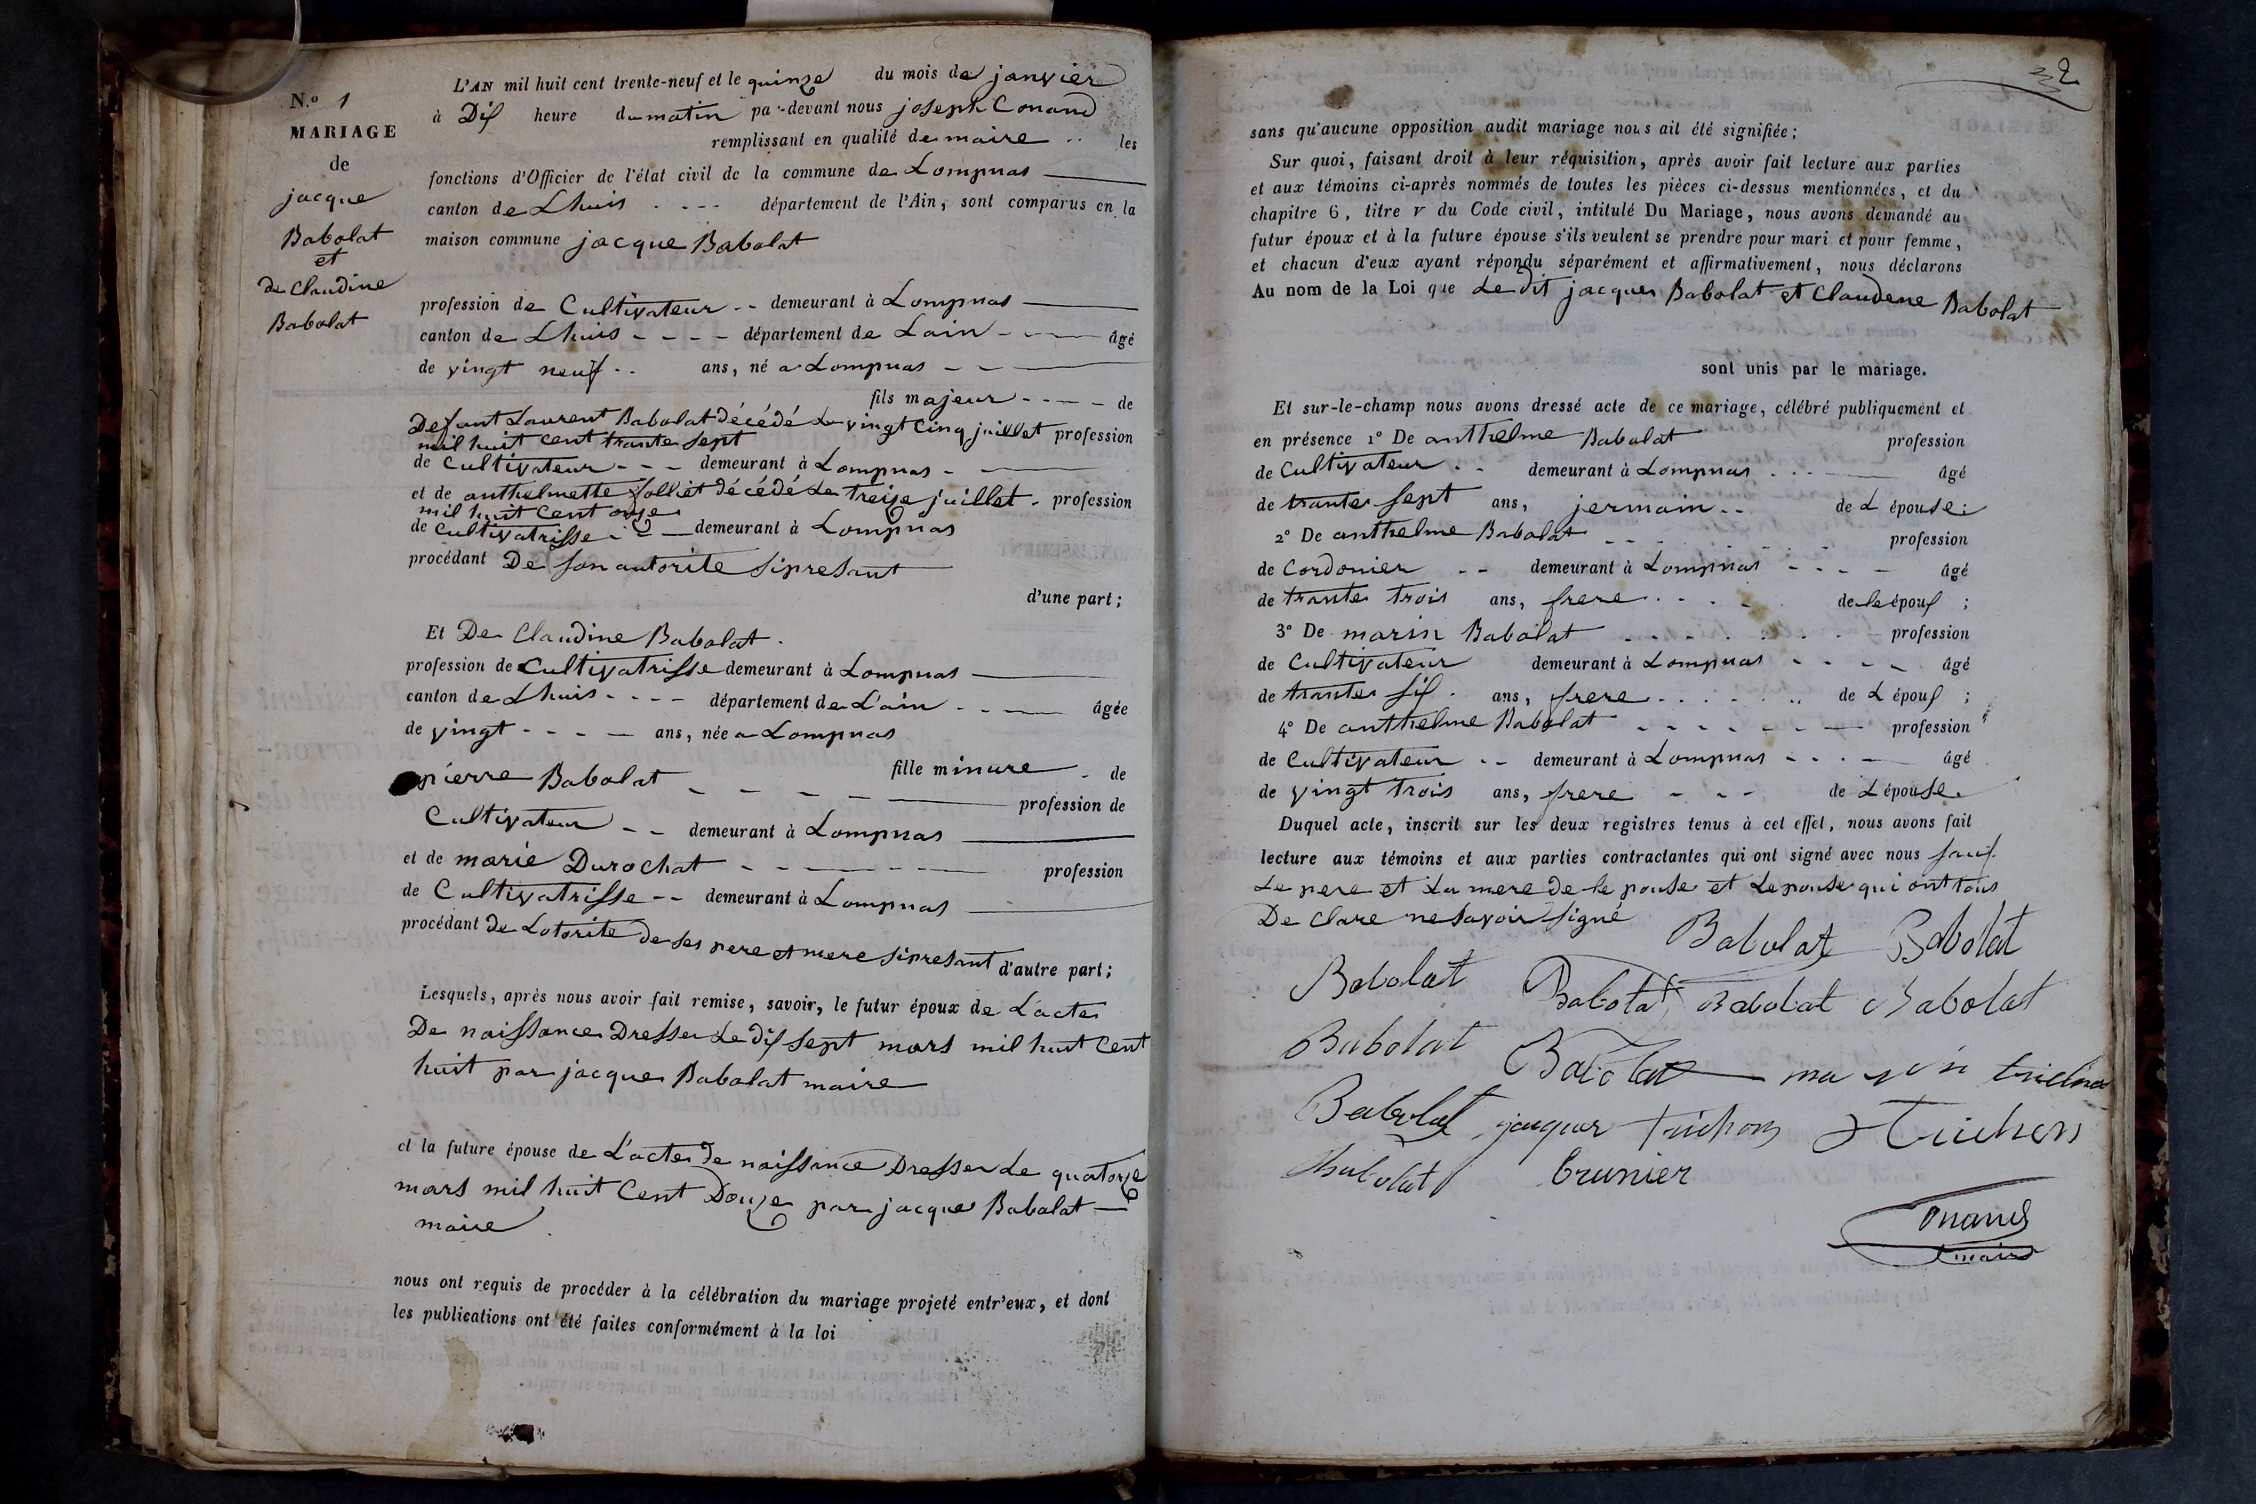 N.º 1
MARIAGE
de
jacque
Babolat
et
de Claudine
Babolat
L'AN mil huit cent trente-neuf et le quinze du mois de janvier
à Dix heure du matin pa-devant nous joseph Conand
remplissant en qualité de maire les
fonctions d'Officier de l'état civil de la commune de Lompnas
canton de Lhuis département de l'Ain, sont comparus en la
maison commune jacque Babolat
profession de Cultivateur demeurant à Lompnas
canton de Lhuis département de Lain âgé
de vingt neuf ans, né a Lompnas
fils majeur de
Defunt Laurent Babolat décédé Le vingt Cinq juillet profession
mil huit cent trante sept
de Cultivateur demeurant à Lompnas
et de anthelmette décédé Le treize juillet profession
mil huit Cent onze
de Cultivatrisse demeurant à Lompnas
procédant De son autorite si presant
d'une part;
Et De Claudine Babolat
profession de Cultivatrisse demeurant à Lompnas
canton de Lhuis département de L'ain âgée
de vingt ans, née a Lompnas
fille minure de
pierre Babolat profession de
Cultivateur demeurant à Lompnas
et de marie Durochat profession
de Cultivatrisse demeurant à Lompnas
procédant de Lotorite de ses pere et mere si presant d'autre part;
Lesquels, après nous avoir fait remise, savoir, le futur époux de L'acte
De naissance Dresser Le dix sept mars mil huit Cent
huit par jacque Babolat maire
et la future épouse de L'acte de naissance Dresser Le quatorze
mars mil huit Cent Douze par jacque Babolat
maire
nous ont requis de procéder à la célébration du mariage projeté entr'eux, et dont
les publications ont été faites conformément à la loi
2
sans qu'aucune opposition audit mariage nous ait été signifiée;
Sur quoi, faisant droit à leur réquisition, après avoir fait lecture aux parties
et aux témoins ci-après nommés de toutes les pièces ci-dessus mentionnées, et du
chapitre 6, titre v du Code civil, intitulé Du Mariage, nous avons demandé au
futur époux et à la future épouse s'ils veulent se prendre pour mari et pour femme,
et chacun d'eux ayant répondu séparément et affirmativement, nous déclarons
Au nom de la Loi que Le dit jacques Babolat et Claudene Babolat
sont unis par le mariage.
Et sur-le-champ nous avons dressé acte de ce mariage, célébré publiquement et
en présence 1º De anthelme Babolat profession
de Cultivateur demeurant à Lompnas âgé
de trante sept ans, jermain de L épouse;
2º De anthelme Babolat profession
de Cordonier demeurant à Lompnas âgé
de trante trois ans, frere de le époux;
3º De marin Babolat profession
de Cultivateur demeurant à Lompnas âgé
de trante six ans, frere de L époux;
4º De anthelme Babolat profession
de Cultivateur demeurant à Lompnas âgé
de vingt trois ans, frere de L épouse.
Duquel acte, inscrit sur les deux registres tenus à cet effet, nous avons fait
lecture aux témoins et aux parties contractantes qui ont signé avec nous sauf
Le pere et La mere de le pouse et Le pouse qui ont tous
De clare ne savoir signé
Babolat Babolat
Babolat Babolat Babolat Babolat
Babolat Babolat
Babolat jacques trichon trichon
Babolat brunier
Conand
maire